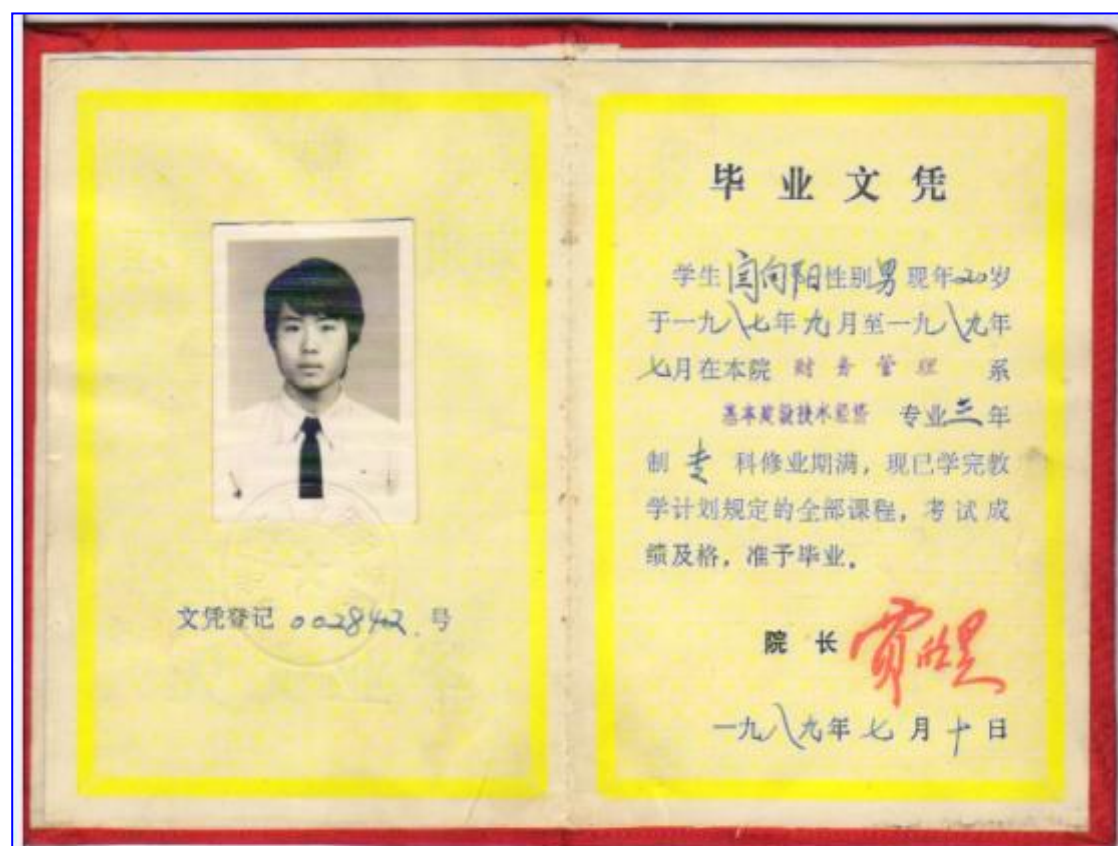 文凭登记 0028422 号
毕业文凭
学生 闫向阳 性别 男 现年 20 岁
于一九八七年九月至一九八九年
七月在本院 财务管理 系
基本建设技术经济 专业三年
制 专 科修业期满，现已学完教
学计划规定的全部课程，考试成
绩及格，准予毕业。
院长
一九八九年七月十日